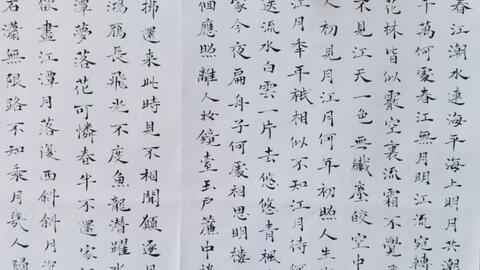 春江潮水連海平海上明月共潮
千萬何處春江無月明江流宛轉
花林皆似霰空裏流霜不覺
不見江天一色無纖塵皎空中
人初見月江月何年初照人生
江月年年祇相似不知江月待何
送流水白雲一片去悠悠青楓
家今夜扁舟子何處相思明樓
個應照離人妝鏡臺玉戶簾中
拂還來此時見不相聞願逐月
鴻雁長飛光不度魚龍潛躍水
潭夢落花可憐春半不還家江
欲盡江潭月落復西斜斜月沉
石瀟無限路不知乘月幾人歸